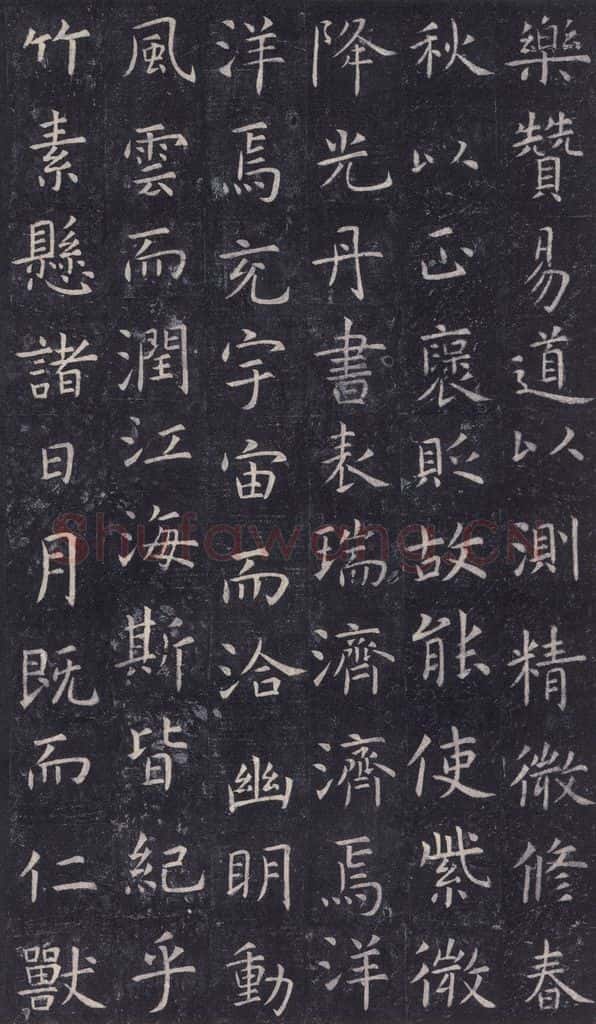 樂贊易道以測精微修春
秋以正褒貶故能使紫微
降光丹書表瑞濟濟焉洋
洋焉充宇宙而洽幽明動
風雲而潤江海斯皆紀乎
竹素懸諸日月既而仁獸
Shufawang.CN